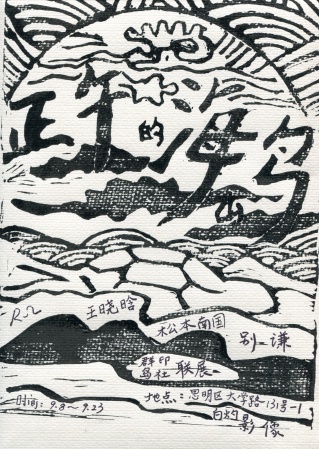 正午的海岛
王晓晗
松本南国
别一谦
群岛印社 联展
时间：9.8～9.23
地点：思明区大学路131号-1
白灼影像